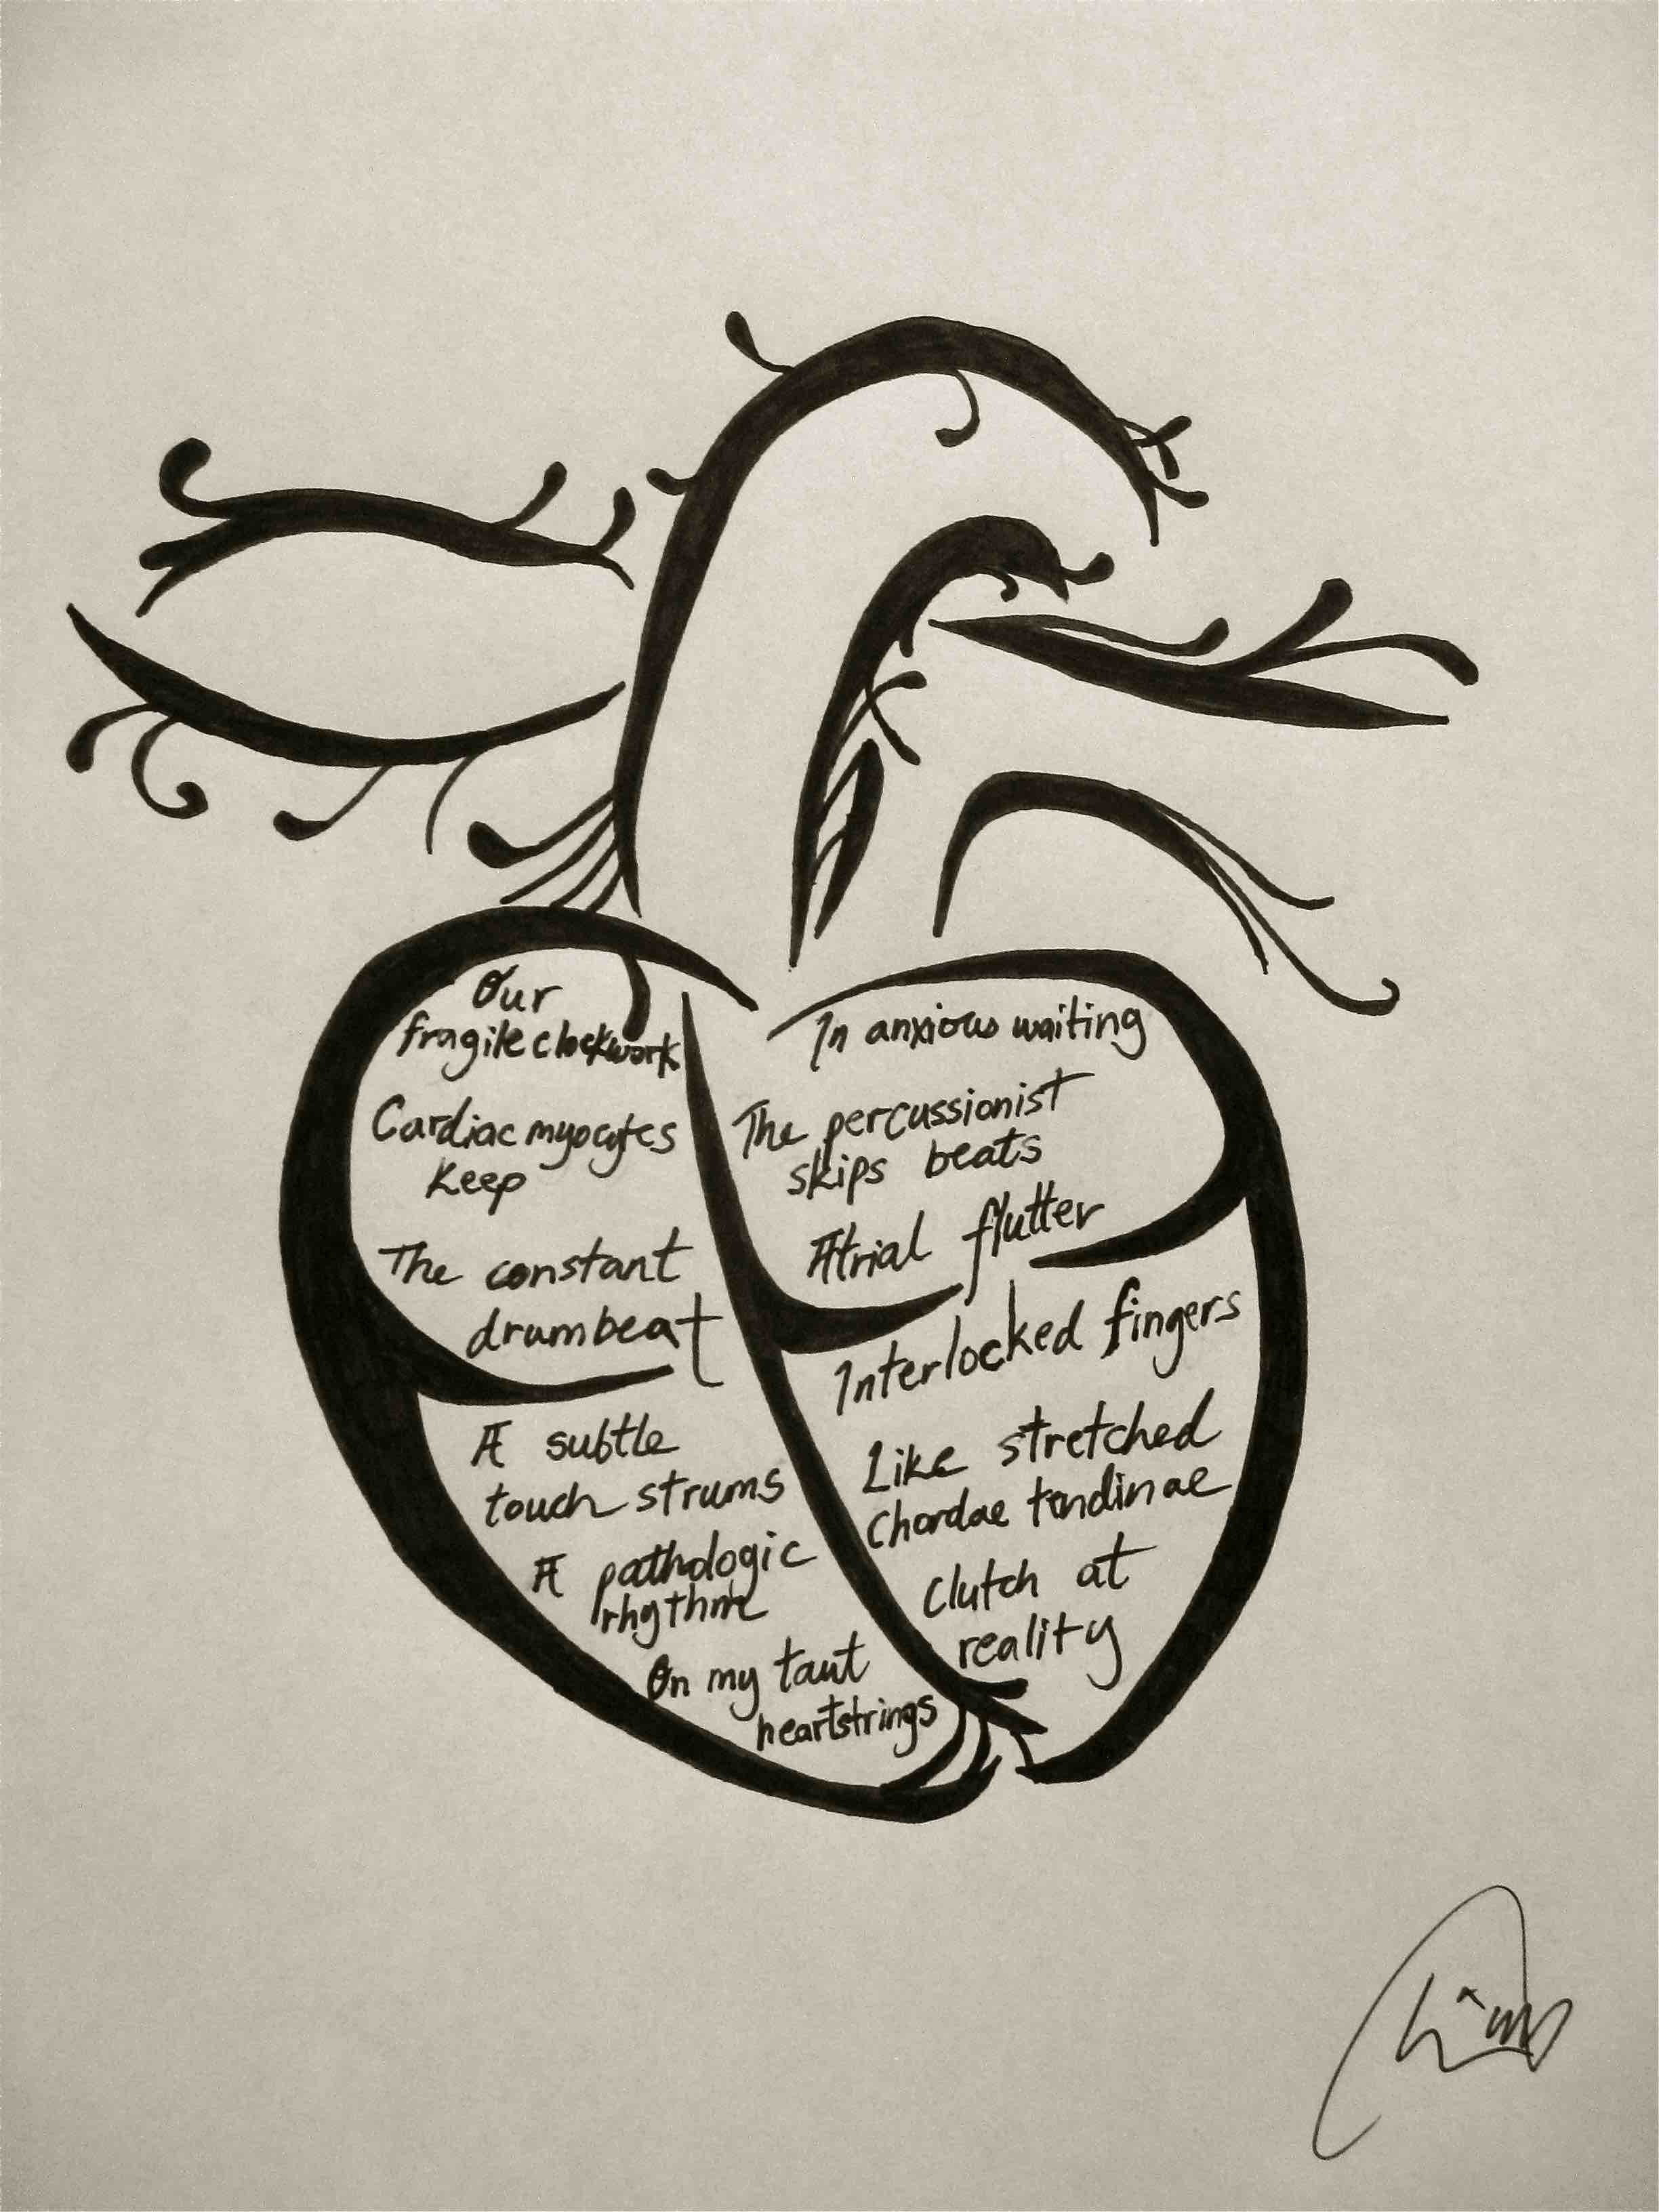 Our
fragile clockwork
Cardiac myocytes
Keep
The constant
drumbeat
In anxious waiting
The percussionist
skips beats
Atrial flutter
A subtle
touch strums
A pathologic
rhythm
On my taut
heartstrings
Interlocked fingers
Like stretched
chordae tendinae
Clutch at
reality